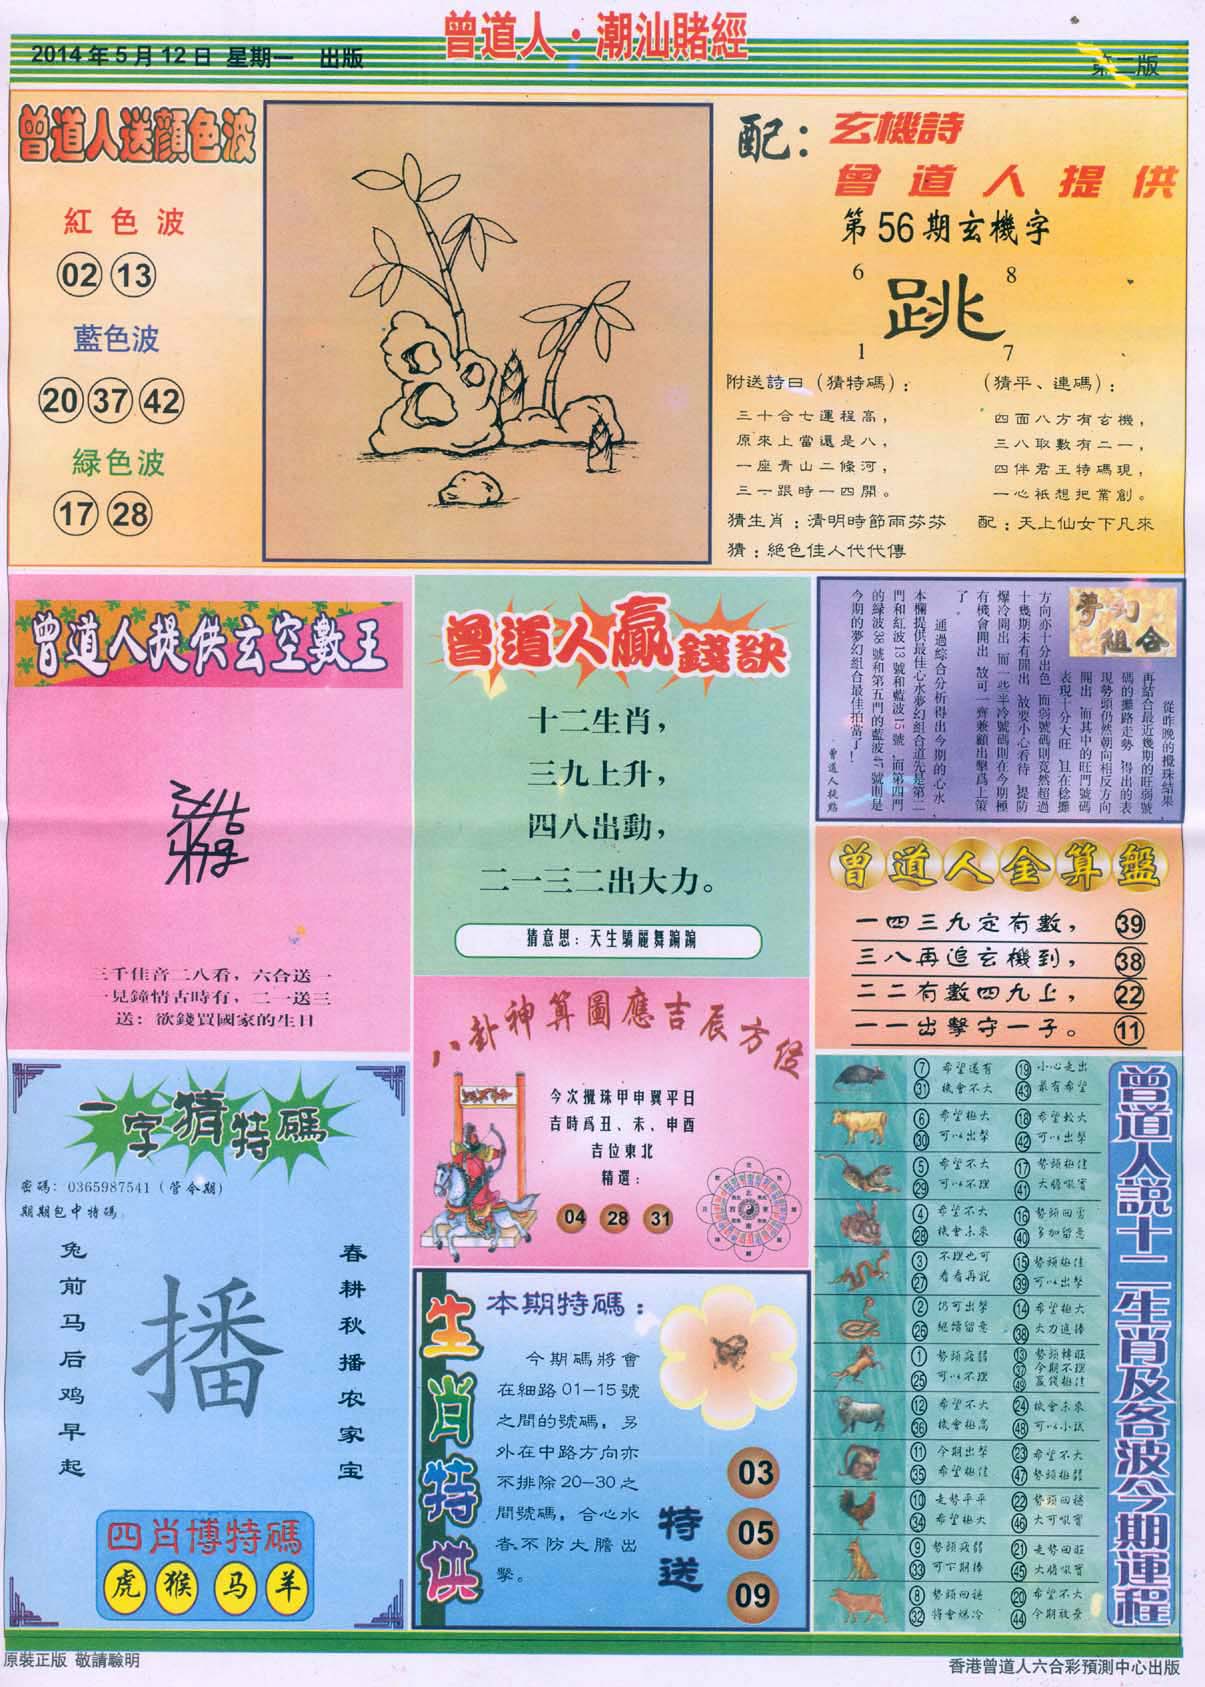 曾道人·潮汕賭經
2014年5月12日 星期一 出版
第二版
曾道人送顔色波
紅色波
02 13
藍色波
20 37 42
緑色波
17 28
配：玄機詩
曾道人提供
第56期玄機字
6 8
跳
1 7
附送詩曰（猜特碼）：
三十合七運程高，
原來上當還是八，
一座青山二條河，
三一跟時一四開。
（猜平、連碼）：
四面八方有玄機，
三八取數有二一，
四伴君王特碼現，
一心衹想把業創。
猜生肖：清明時節雨芬芬
配：天上仙女下凡來
猜：絕色佳人代代傳
曾道人提供玄空數王
三千佳音二八看，六合送一
一見鐘情古時有，二一送三
送：欲錢買國家的生日
曾道人贏錢訣
十二生肖，
三九上升，
四八出動，
二一三二出大力。
猜意思：天生驕麗舞蹁蹁
夢幻組合
從昨晚的攪珠結果，
再結合最近幾期的旺弱號
碼的攤路走勢，得出的表
現勢頭仍然朝向相反方向
開出，而其中的旺門號碼
表現十分大旺，且在稔攤
方向亦十分出色，而弱號碼則竟然超過
十幾期未有開出，故要小心看待，提防
爆冷開出，而一些半冷號碼則在今期極
有機會開出，故可一齊兼顧出擊爲上策
了。
通過綜合分析得出今期的心水，
本欄提供最佳心水夢幻組合道先是第二
門和紅波13號和藍波15號，而第四門
的緑波38號和第五門的藍波47號則是
今期的夢幻組合最佳拍當了！
曾道人提點
曾道人金算盤
一四三九定有數， 39
三八再追玄機到， 38
二二有數四九上， 22
一一出擊守一子。 11
一字猜特碼
密碼：0365987541（管令期）
期期包中特碼
兔前马后鸡早起
播
春耕秋播农家宝
四肖博特碼
虎 猴 马 羊
八卦神算圖應吉辰方位
今次攪珠甲申翼平日
吉時爲丑、未、申酉
吉位東北
精選：
04 28 31
生肖特供
本期特碼：
今期碼將會
在細路01-15號
之間的號碼，另
外在中路方向亦
不排除20-30之
間號碼，合心水
者不防大膽出
擊。
特送
03
05
09
曾道人説十二生肖及各波今期運程
7 希望還有 19 小心走出
31 機會不大 43 最有希望
6 希望極大 18 希望較大
30 可以出擊 42 可以出擊
5 希望不大 17 勢頭極佳
29 可以不理 41
4 希望不大 16 勢頭回勇
28 機會未來 40 多加留意
3 不理也可 15 勢頭極佳
27 看看再説 39 可以出擊
2 仍可出擊 14 希望極大
26 繼續留意 38 大力追捧
1 勢頭疲弱 13 勢頭轉旺
25 可以不理 37 今期不理
49 贏錢極佳
12 希望不大 24 機會未來
36 機會極高 48 可以小試
11 今期出擊 23 希望不大
35 希望極佳 47 勢頭極弱
10 走勢平平 22 勢頭回穩
34 希望極大 46
9 勢頭疲弱 21 走勢回旺
33 可下期捧 45
8 勢頭回穩 20 希望不大
32 將會爆冷 44 今期放棄
原裝正版 敬請驗明
香港曾道人六合彩預測中心出版